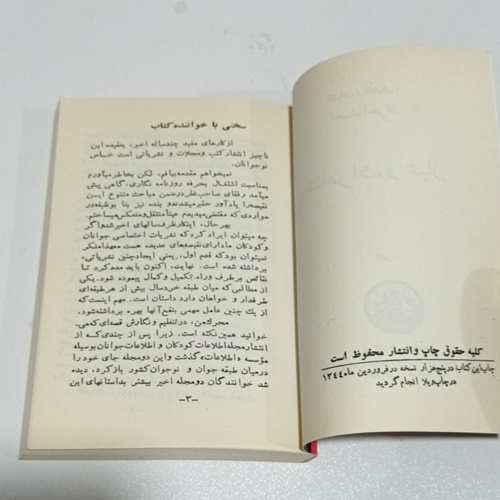 سخنی با خواننده کتاب
از کارهای مفید چندساله اخیر، بعقیده این
ناچیز انتشار کتب و مجلات و نشریاتی است خاص
نوجوانان.
نمیخواهم مقدمه ببافم. لکن بخاطر میآورم
بمناسبت اشتغال بحرفه روزنامه نگاری، گاهی پیش
میآمد رفقای صاحب‌نظر در ضمن مباحث متنوع این
نقیصه را یادآور
مواردی که مقتضی میدیدم عیناً منتقل و منعکس میساختم.
بهر حال، ابتکار ظرف سالهای اخیر شد و اگر
چه میتوان ایراد کرد که نشریات اختصاصی جوانان
و کودکان ما دارای نقیصه‌های عدیده هست معهذا منکر
نمیتوان بود که قدم اول، یعنی ایجاد چنین نشریاتی،
برداشته شده است. نهایت، اکنون باید مدد کرد تا
نقائص برطرف و راه تکمیل و کمال پیموده شود. یکی
از مطالبی که میان طبقه خردسال بیش از هر طبقه‌ای
طرفدار و خواهان دارد داستان است. مهم اینست که
از یك چنین عامل مهمی بنفع آنها بهره برداشته شود.
محرك من، در تنظیم و نگارش قصه‌ای که می‌
خوانید همین نکته است. زیرا پس از چندی که از
انتشار مجله اطلاعات کودکان و اطلاعات جوانان بوسیله
مؤسسه «اطلاعات» گذشت و این دو مجله جای خود را
در میان طبقه جوان و نوجوان کشور باز کرد، دیده
شد خوانندگان دو مجله اخیر بیشتر بداستانهای این
-۳-
کلیه حقوق چاپ و انتشار محفوظ است
چاپ این کتاب در پنج هزار نسخه در فروردین ماه ۱۳۴۴
در چاپ ویلا انجام گردید